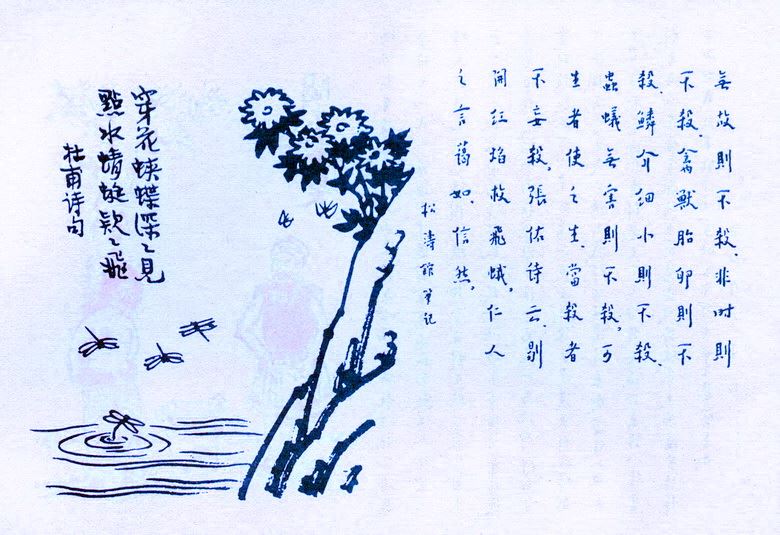 無故則不殺、非时則
不殺、禽獸胎卵則不
殺、鱗介細小則不殺、
蟲蟻無害則不殺，可
生者使之生、當殺者
不妄殺。張佑诗云、剔
開红焰救飛蛾，仁人
之言藹如、信然。
松濤館筆记
穿花蛺蝶深〻見
點水蜻蜓欵〻飛
杜甫诗句